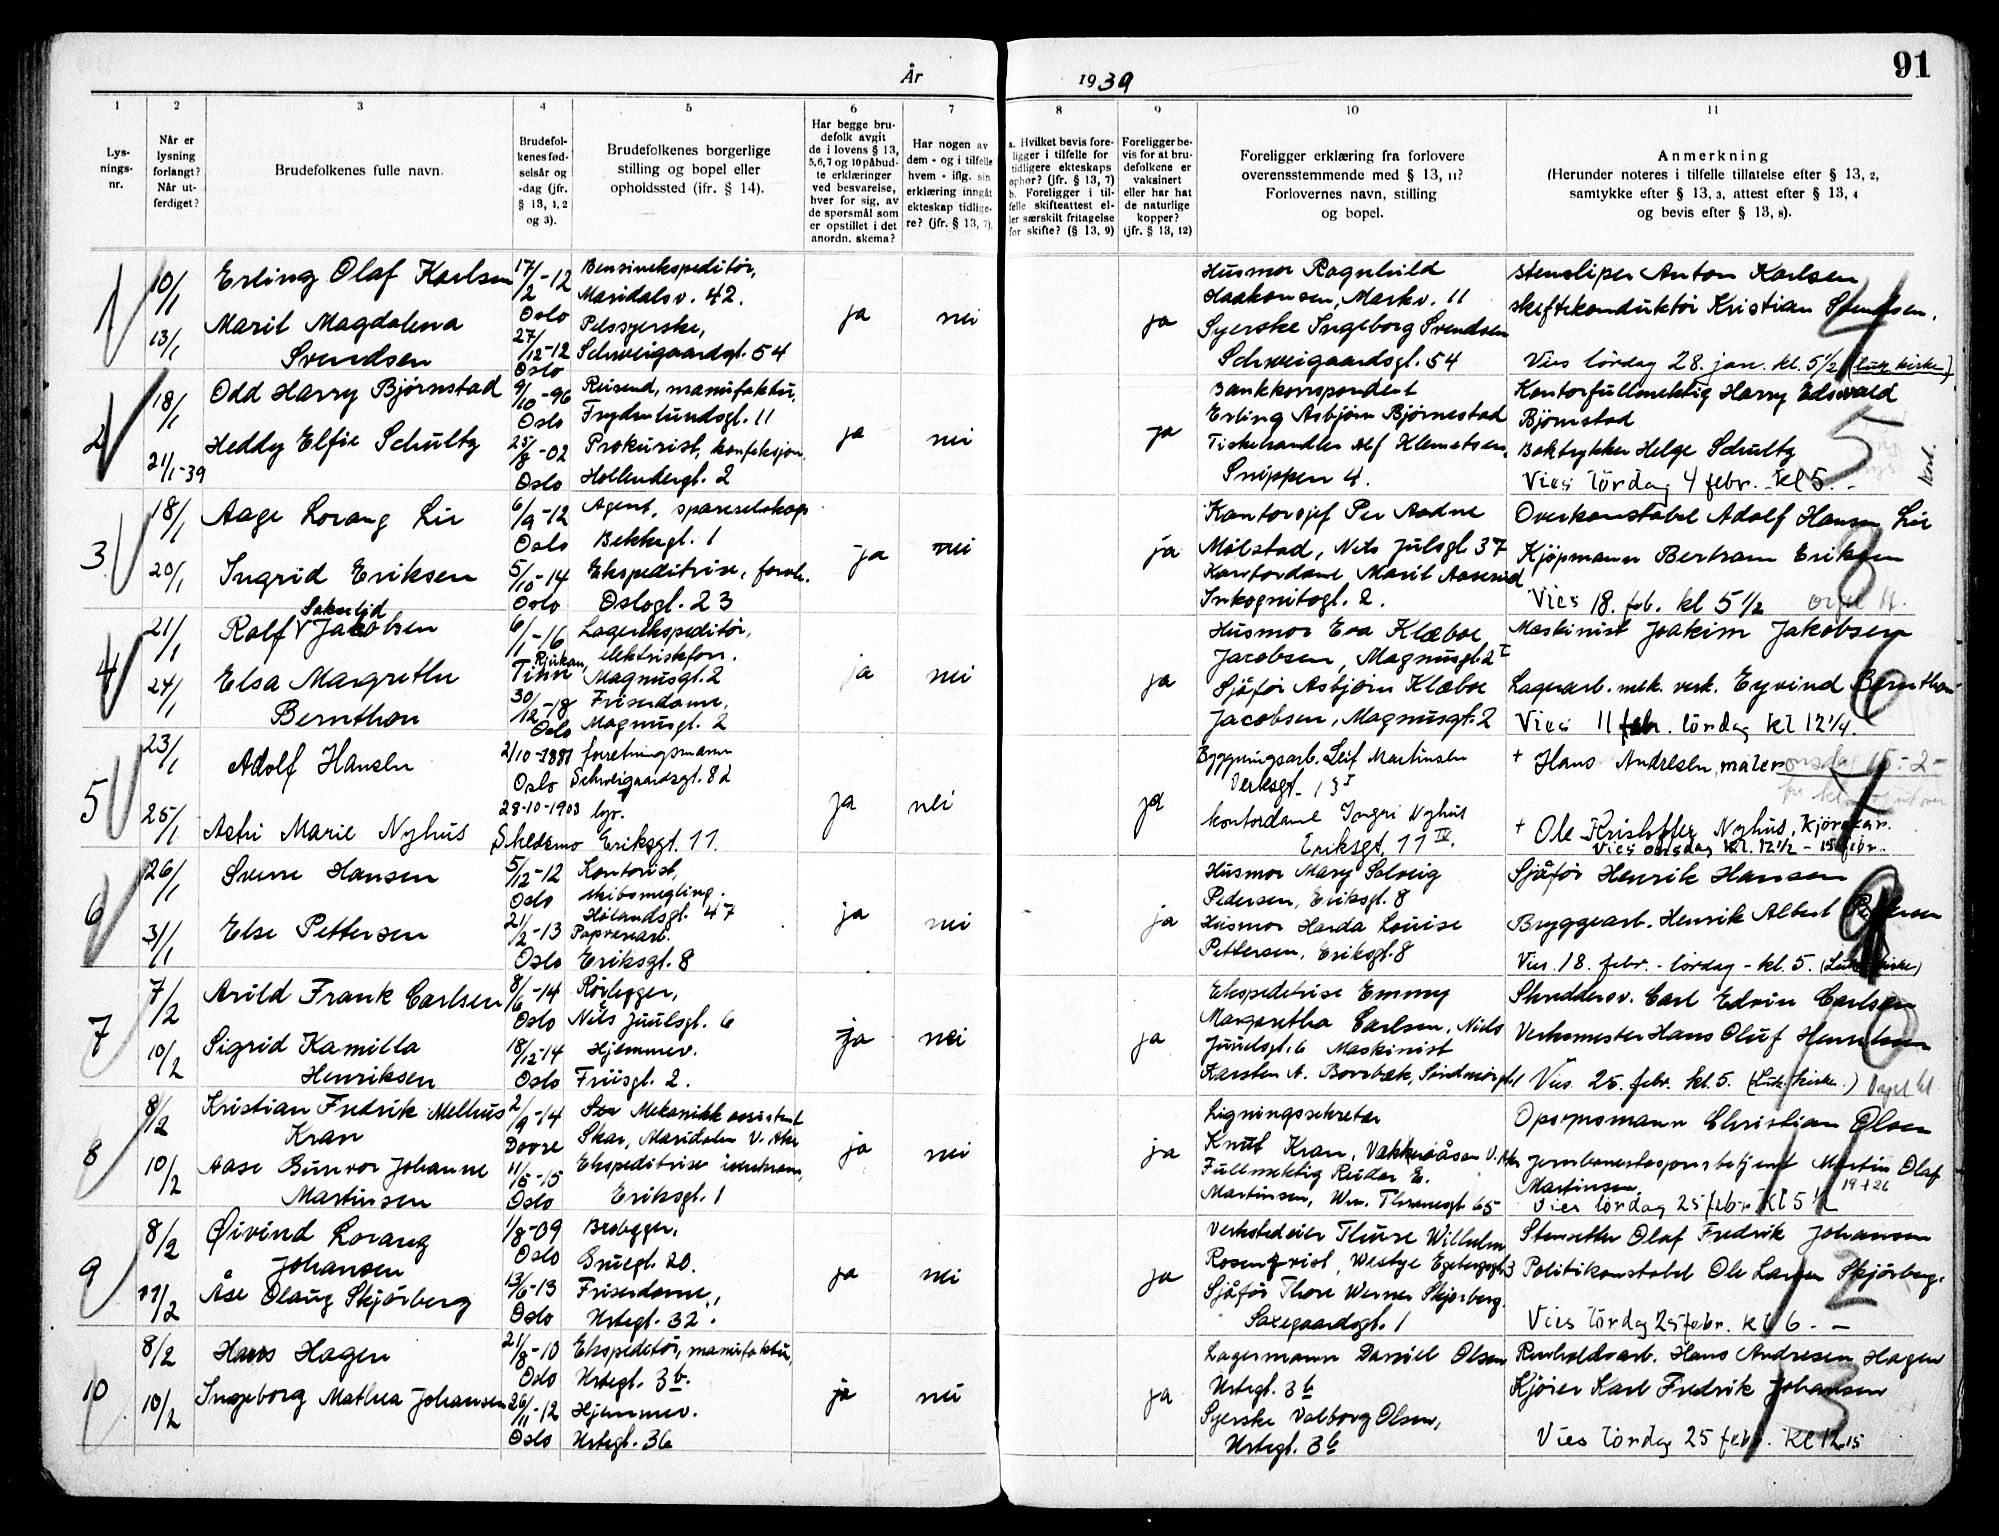 År 1939
91
1
2
3
4
5
6
7
8
9
10
11
Lys-
nings-
nr.
Når er
lysning
forlangt?
Når ut-
ferdiget?
Brudefolkenes fulle navn.
Brudefol-
kenes fød-
selsår og
-dag (jfr.
§ 13, 1, 2
og 3).
Brudefolkenes borgerlige
stilling og bopel eller
opholdssted (jfr. § 14).
Har begge bru-
defolk avgit
de i lovens § 13,
5,6,7 og 10 påbud-
te erklæringer
ved besvarelse,
hver for sig, av
de spørsmål som
er opstillet i det
anordn. skema?
Har nogen av
dem - og i tilfelle
hvem - iflg. sin
erklæring inngåt
ekteskap tidlige-
re? (jfr. § 13, 7).
a. Hvilket bevis fore-
ligger i tilfelle for
tidligere ekteskaps
ophør? (jfr. § 13, 7)
b. Foreligger i til-
felle skifteattest el-
ler særskilt fritagelse
for skifte? (§ 13, 9)
Foreligger be-
vis for at bru-
defolkene er
vaksinert
eller har hat
de naturlige
kopper?
(jfr. § 13, 12)
Foreligger erklæring fra forlovere
overensstemmende med § 13, 11?
Forlovernes navn, stilling
og bopel.
Anmerkning
(Herunder noteres i tilfelle tillatelse efter § 13, 2,
samtykke efter § 13, 3, attest efter § 13, 4
og bevis efter § 13, 8).
1
10/1
13/1
Erling Olaf Karlsen
Marit Magdalena
Svendsen
17/2-12
Oslo
27/12-12
Oslo
Bensinekspeditør,
Maridalsv. 42.
Pelssyerske,
Schweigaardsgt. 54
ja
nei
ja
Husmor Ragnhild
Haakonsen, Markv. 11
Syerske Ingeborg Svendsen
Schweigaardsgt. 54
Stensliper Anton Karlsen
Skiftekonduktør Kristian Svendsen.
Vies lördag 28. jan. kl. 5 1/2 (Luk. kirke)
4
2
18/1
21/1-39
Odd Harry Bjørnstad
Heddy Elfie Schultz
9/10-96
Oslo
25/8-02
Oslo
Reisend, manufaktur,
Frydenlundsgt. 11
Prokurist, konfeksjon.
Hollendergt. 2
ja
nei
ja
Bankkorrspondent
Erling Asbjørn Bjørnestad
Fiskehandler Alf Klemetsen,
Snippen 4.
Kontorfullmektig Harry Edsvald
Bjørnstad
Boktrykker Helge Schultz
Vies lördag 4 febr. kl 5. -
5
3
18/1
20/1
Aage Lorang Lie
Ingrid Eriksen
6/9-12
Oslo
5/10-14
Oslo
Agent, spareselskap
Bekkegt. 1
Ekspeditrise, forretn.
Oslogt. 23
ja
nei
ja
Kontorsjef Per Aadne
Mølstad, Nils Julsgt 37
Kontordame Marit Aaserud
Inkognitogt. 2.
Overkonstabel Adolf Hansen Lie
Kjøpmann Bertram Eriksen
Vies 18. feb. kl 5 1/2
8
4
21/1
24/1
Rolf Jakobsen
Elsa Margrethe
Bernthon
6/1-16
Rjukan,
Tinn
30/12-18
Oslo
Lagerekspeditør,
elektriskforr.
Magnusgt. 2
Friserdame,
Magnusgt. 2
ja
nei
ja
Husmor Eva Klæboe
Jacobsen, Magnusgt. 2 I
Sjåfør Asbjörn Klæboe
Jacobsen, Magnusgt. 2
Maskinist Joakim Jakobsen
Lagerarb. mek. verk. Eyvind Bernthon
Vies 11 febr. lördag kl 12 1/4.
6
5
23/1
25/1
Adolf Hansen
Astri Marie Nyhus
2/10-1887
Oslo
28-10-1903
Skedsmo
forretningsmann
Schweigaardsgt. 82
Eriksgt. 11.
ja
nei
ja
Bygningsarb. Leif Martinsen
Verksgt. 13 I
kontordame Ingri Nyhus
Eriksgt. 11 IV.
+ Hans Andresen, maler
onsdag 15-2-
+ Ole Kristoffer Nyhus, kjørekar.
Vies onsdag kl. 12 1/2 - 15 febr.
7
6
26/1
31/1
Sverre Hansen
Else Pettersen
5/12-12
Oslo
21/2-13
Oslo
Kontorist,
skibsmegling.
Hølandsgt. 47
Papvarearb.
Eriksgt. 8
ja
nei
ja
Husmor Mary Solveig
Pedersen, Eriksgt. 8
Husmor Harda Louise
Pettersen, Eriksgt. 8
Sjåfør Henrik Hansen
Bryggearb. Henrik Albert Pettersen
Vies 18. febr. - lördag - kl. 5. (Luk. kirke)
9
7
7/2
10/2
Arild Frank Carlsen
Sigrid Kamilla
Henriksen
8/6-14
Oslo
18/12-14
Oslo
Rørlegger,
Nils Juulsgt. 6
Hjemmev.
Friisgt. 2.
ja
nei
ja
Ekspeditrise Emmy
Margaretha Carlsen, Niels
Juuelsgt. 6 Maskinist
Karsten A. Borrbæk, Sindmørgt. 1
Skredderv. Carl Edvin Carlsen
Verksmester Hans Oluf Henriksen
Vies 25. febr. kl. 5. (Luk. kirke.)
10
8
8/2
10/2
Kristian Fredrik Melhus
Kran
Aase Gunvor Johanne
Martinsen
2/9-14
Dovre
11/5-15
Oslo
Mekanikk assistent
Skar, Maridalen V. Aker
Ekspeditrise
Eriksgt. 1
ja
nei
ja
Ligningssekretær
Knut Kran, Vækkeråsen V. Aker
Fullmektig Reidar E.
Martinsen, Wm. Thranesgt. 65
Opsynsmann Christian Olsen
Jernbanestasjonsbetjent Martin Olaf
Martinsen
19+26
Vies lördag 25 febr. kl 5 1/2
11
9
8/2
11/2
Øivind Lorang
Johansen
Åse Olaug Skjørberg
1/8-09
Oslo
13/6-13
Oslo
Brolegger,
Gruegt. 20.
Friserdame,
Urtegt. 32.
ja
nei
ja
Verkstedeier Thure Wilhelm
Rosenqvist, Westye Egebergsgt. 3
Sjåfør Thore Werner Skjørberg.
Saxegaardsgt. 1
Stensetter Olaf Fredrik Johansen
Politikonstabel Ole Larsen Skjörberg.
Vies lördag 25 febr. kl 6. -
12
10
8/2
10/2
Hans Hagen
Ingeborg Mathea Johansen
21/8-10
Oslo
26/11-12
Oslo
Ekspeditør, manufaktur,
Urtegt. 3b.
Hjemmev.
Urtegt. 36
ja
nei
ja
Lagermann Daniel Olsen
Urtegt. 3b
Syerske Valborg Olsen,
Urtegt. 3b
Renholdsarb. Hans Andresen Hagen
Kjører Karl Fredrik Johansen
Vies lördag 25 febr. kl 12.15
13